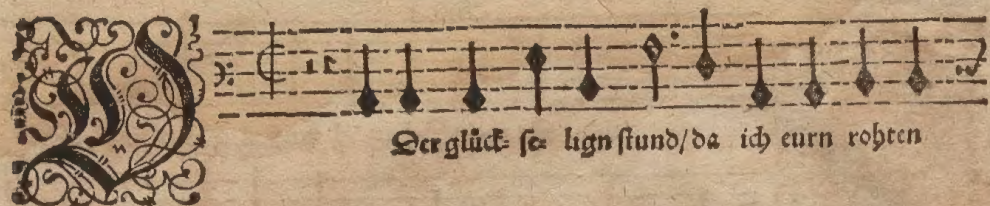 O Der glück= se= lign stund/da ich eurn rohten